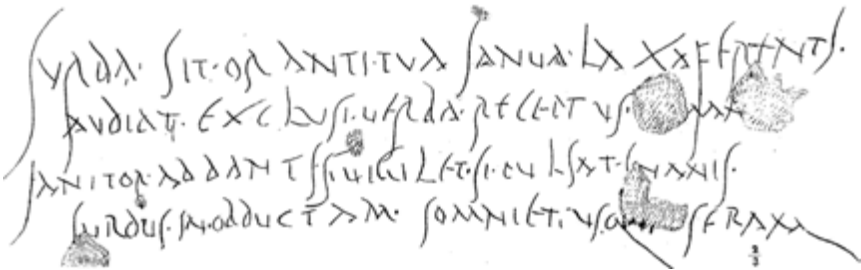 SVRDA· SIT·ORANTI·TVA IANVA·LAXA FERENTI·
AVDIAT· EXCLVSI·VERBA·RECEPTVS·
IANITOR·AD DANTIS VIGILET·SI·PVLSAT·INANIS·
SVRDVS·IN·OBDVCTAM· SOMNIET·VSQVE SERAM
2/3